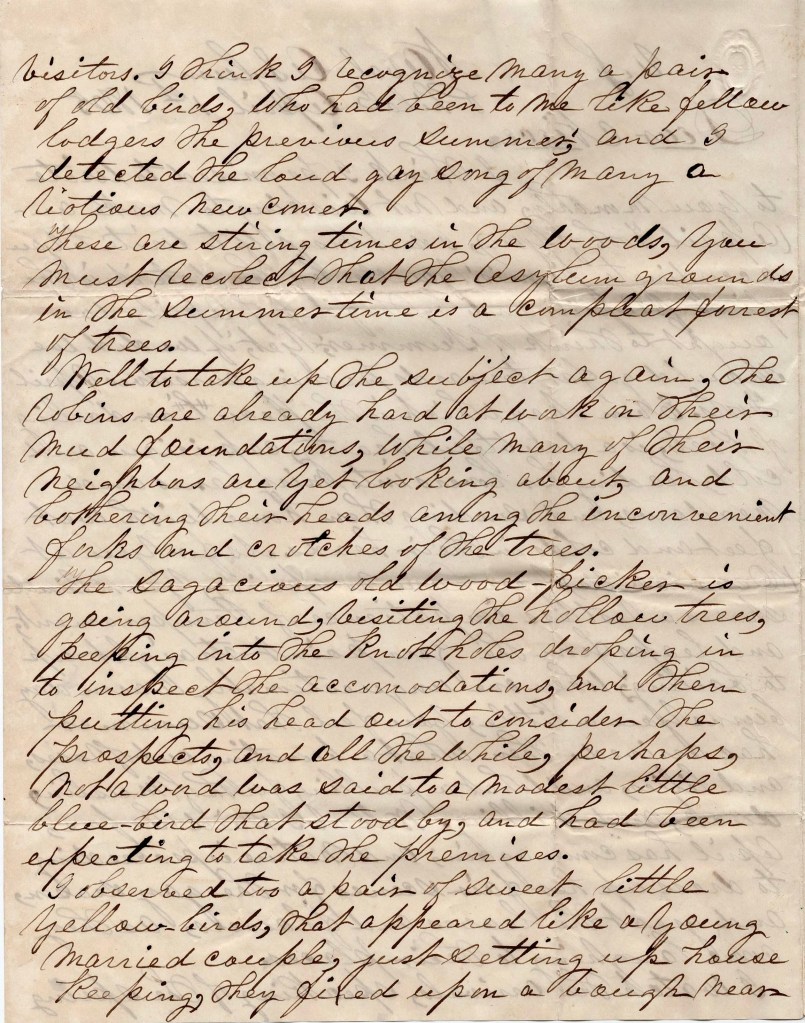 visitors. I think I recognize many a pair
of old birds, who had been to me like fellow
lodgers the previous summer, and I
detected the loud gay song of many a
riotious new comer.
These are stiring times in the woods, you
must recolect that the Asylum grounds
in the summer time is a compleat forrest
of trees.
Well to take up the subject again, the
robins are already hard at work on their
mud foundations, while many of their
neighbors are yet looking about, and
bothering their heads among the inconvenient
forks and crotches of the trees.
The sagacious old wood-picker is
going around, visiting the hollow trees,
peeping into the knot holes droping in
to inspect the accomodations, and then
putting his head out to consider the
prospects, and all the while, perhaps,
not a word was said to a modest little
blue-bird that stood by, and had been
expecting to take the premises.
I observed too a pair of sweet little
yellow-birds, that appeared like a young
married couple, just setting up house
keeping, they fixed upon a bough near